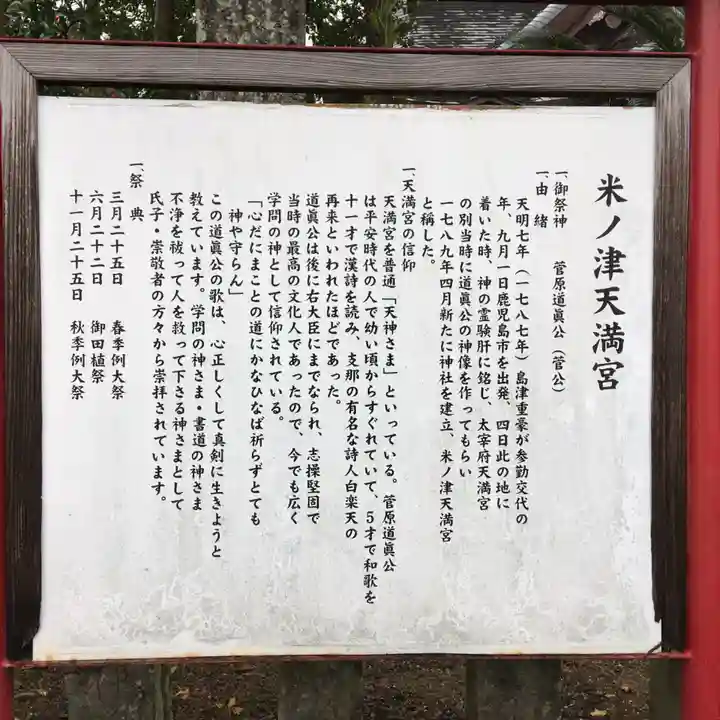 米ノ津天満宮
一、御祭神　菅原道眞公（菅公）
一、由　緒
天明七年（一七八七年）島津重豪が参勤交代の
年、九月一日鹿児島市を出発、四日此の地に
着いた時、神の霊験肝に銘じ、太宰府天満宮
の別当時に道眞公の神像を作ってもらい
一七八九年四月新たに神社を建立、米ノ津天満宮
と稱した。
一、天満宮の信仰
天満宮を普通「天神さま」といっている。菅原道眞公
は平安時代の人で幼い頃からすぐれていて、５才で和歌を
十一才で漢詩を読み、支那の有名な詩人白楽天の
再来といわれたほどであった。
道眞公は後に右大臣にまでなられ、志操堅固で
当時の最高の文化人であったので、今でも広く
学問の神として信仰されている。
「心だにまことの道にかなひなば祈らずとても
神や守らん」
この道眞公の歌は、心正しくして真剣に生きようと
教えています。学問の神さま・書道の神さま
不浄を祓って人を救って下さる神さまとして
氏子・崇敬者の方々から崇拝されています。
一、祭　典
三月二十五日　春季例大祭
六月二十二日　御田植祭
十一月二十五日　秋季例大祭